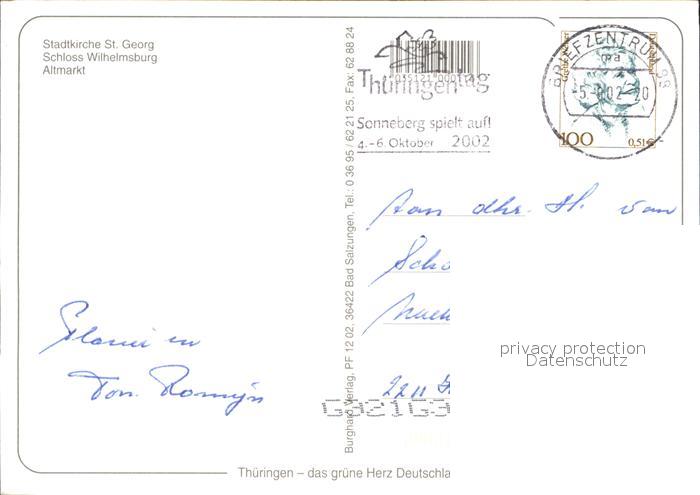 Stadtkirche St. Georg
Schloss Wilhelmsburg
Altmarkt
Thüringentag
Sonneberg spielt auf!
4.-6. Oktober 2002
BRIEFZENTRUM 99
100 0,51€
Burghard Verlag, PF 12 02, 36422 Bad Salzungen, Tel.: 0 36 95 / 62 21 25, Fax: 62 88 24
Aan dhr. H. van
Scho
2211
Ton Romijn
privacy protection
Datenschutz
Thüringen – das grüne Herz Deutschla